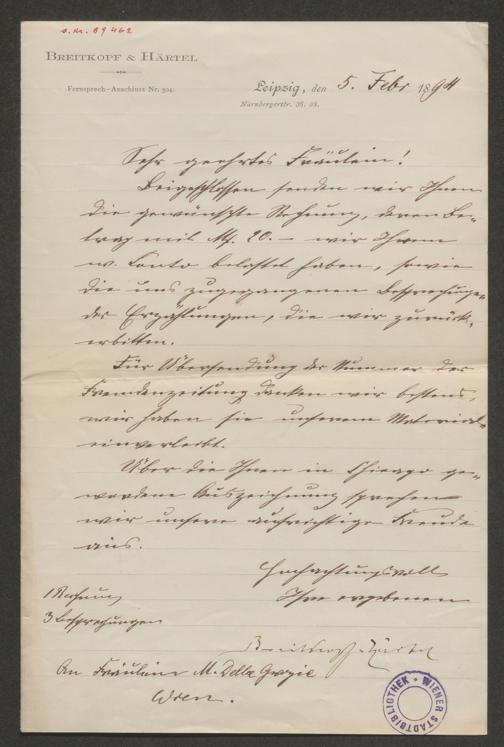 s. Nr. 69462
BREITKOPF & HÄRTEL
Fernsprech-Anschluss Nr. 304.
Leipzig, den 5. Febr 1894
Nürnbergerstr. 36. 38.
Sehr geehrtes Fräulein!
Beigeschlossen senden wir Ihnen
die gewünschte Rechnung, deren Be-
trag mit Mk. 20.- wir Ihrem
w. Conto belastet haben, sowie
die uns zugegangenen Besprechungen
der Erzählungen, die wir zurück-
erbitten.
Für Übersendung der Nummer der
Fremdenzeitung danken wir bestens,
wir haben sie unserem Material
einverleibt.
Über die Ihnen in Chicago ge-
wordene Auszeichnung sprechen
wir unsere aufrichtige Freude
aus.
Hochachtungsvoll
Ihre ergebenen
1 Rechnung
3 Besprechungen
Breitkopf & Härtel
An Fräulein M. Delle Grazie
Wien.
WIENER STADTBIBLIOTHEK